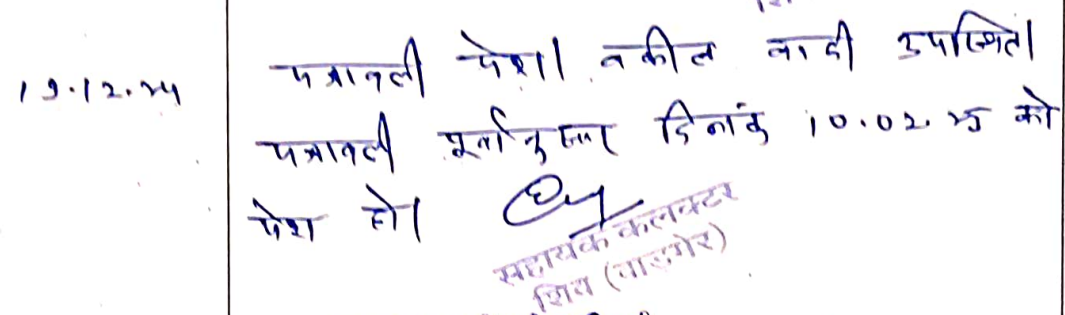 19.12.24
पत्रावली पेश। वकील वादी उपस्थित।
पत्रावली पूर्वानुसार दिनांक 10.02.25 को
पेश हो।
सहायक कलक्टर
शिव (बाड़मेर)